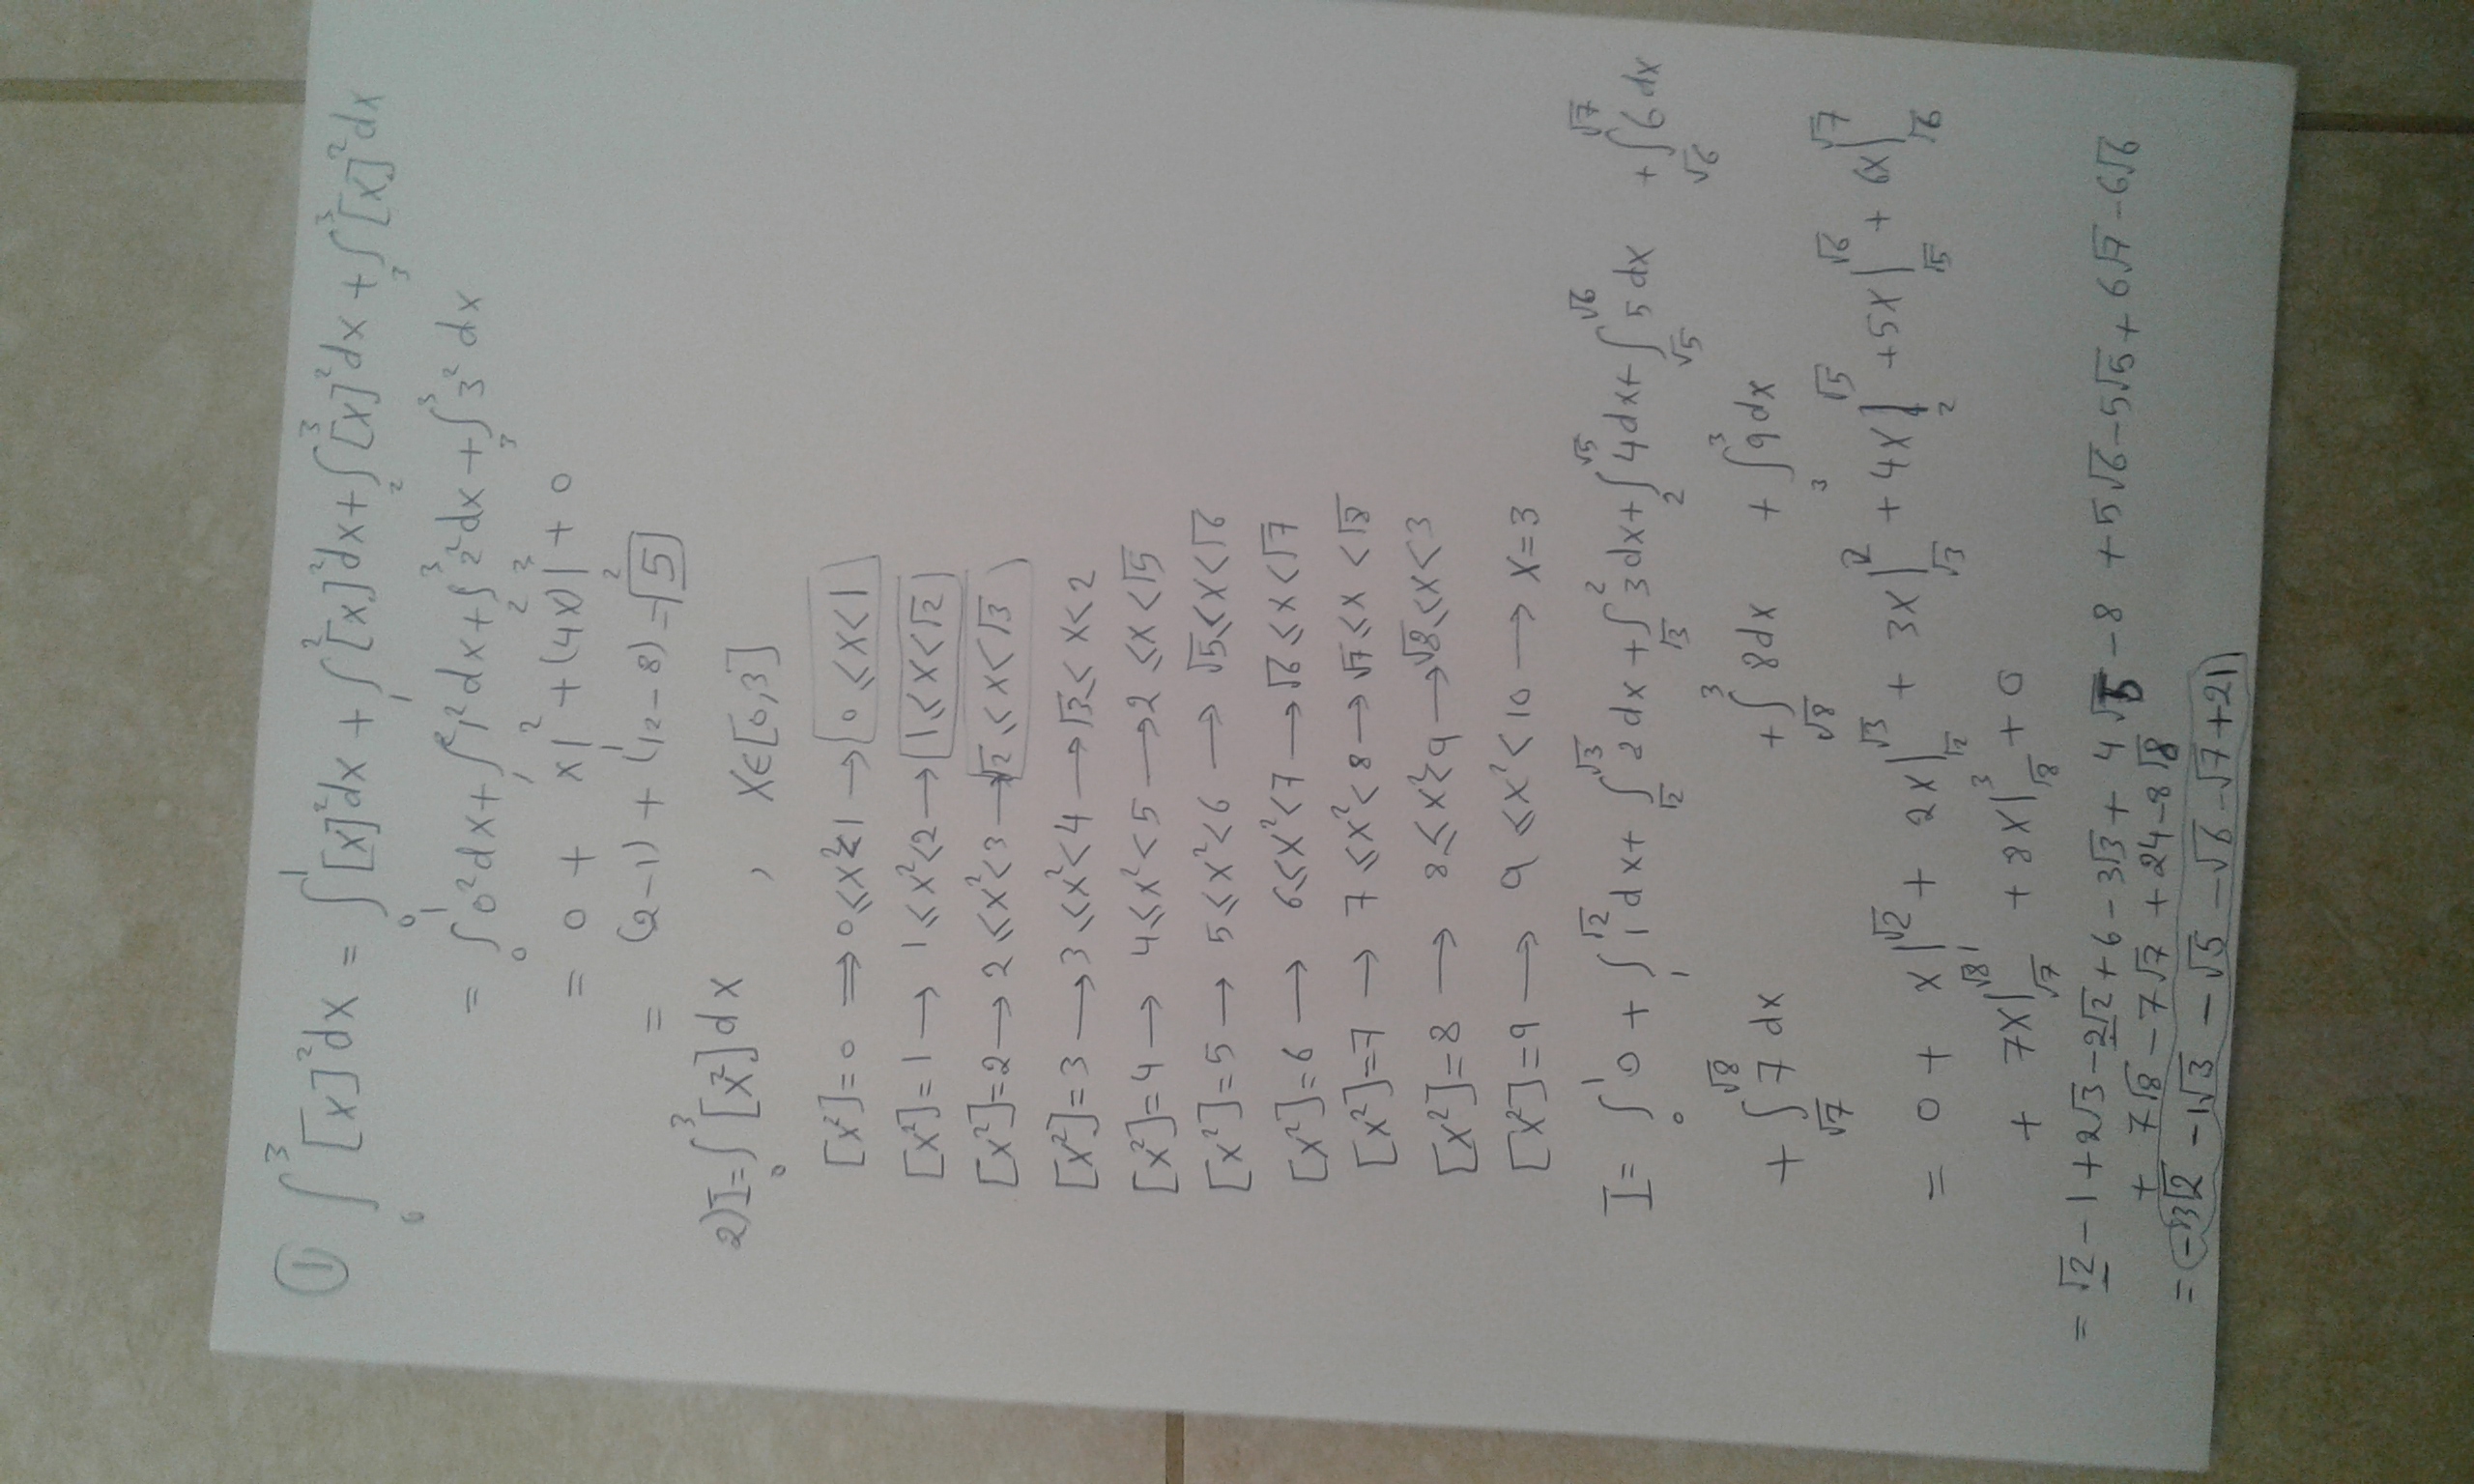 ① ∫₀³ [x]² dx = ∫₀¹ [x]² dx + ∫₁² [x]² dx + ∫₂³ [x]² dx + ∫₃³ [x]² dx
= ∫₀¹ 0² dx + ∫₁² 1² dx + ∫₂³ 2² dx + ∫₃³ 3² dx
= 0 + x|₁² + (4x)|₂³ + 0
= (2-1) + (12-8) = 5
2) I = ∫₀³ [x²] dx , x∈[0,3]
[x²]=0 ⟹ 0≤x²<1 → 0≤x<1
[x²]=1 → 1≤x²<2 → 1≤x<√2
[x²]=2 → 2≤x²<3 → √2≤x<√3
[x²]=3 → 3≤x²<4 → √3≤x<2
[x²]=4 → 4≤x²<5 → 2≤x<√5
[x²]=5 → 5≤x²<6 → √5≤x<√6
[x²]=6 → 6≤x²<7 → √6≤x<√7
[x²]=7 → 7≤x²<8 → √7≤x<√8
[x²]=8 → 8≤x²<9 → √8≤x<3
[x²]=9 → 9≤x²<10 → x=3
I = ∫₀¹ 0 + ∫₁^√2 1dx + ∫_√2^√3 2dx + ∫_√3^2 3dx + ∫₂^√5 4dx + ∫_√5^√6 5dx + ∫_√6^√7 6dx
+ ∫_√7^√8 7dx + ∫_√8^3 8dx + ∫₃³ 9dx
= 0 + x|₁^√2 + 2x|_√2^√3 + 3x|_√3^2 + 4x|₂^√5 + 5x|_√5^√6 + 6x|_√6^√7
+ 7x|_√7^√8 + 8x|_√8^3 + 0
= √2 - 1 + 2√3 - 2√2 + 6 - 3√3 + 4√5 - 8 + 5√6 - 5√5 + 6√7 - 6√6
+ 7√8 - 7√7 + 24 - 8√8
= -3√2 - 1√3 - √5 - √6 - √7 + 21